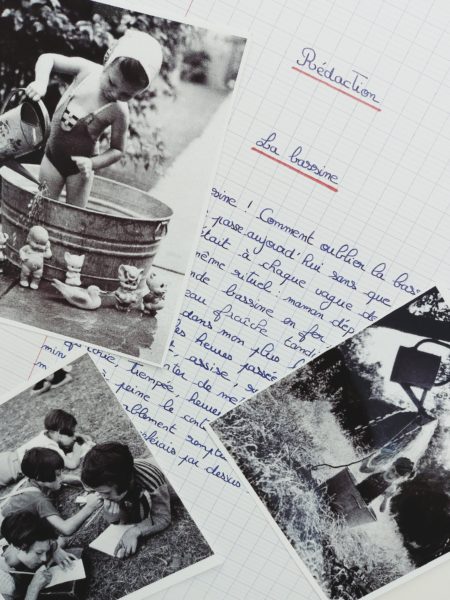 Rédaction
La bassine
sine ! Comment oublier la bas-
passe aujourd'hui sans que
était à chaque vague de
même rituel : maman dép
nde bassine en fer
eau fraîche tandi
dans mon plus
les heures passée
assise, s
trempée, heure
à peine le cont
llement sompt
par dessus